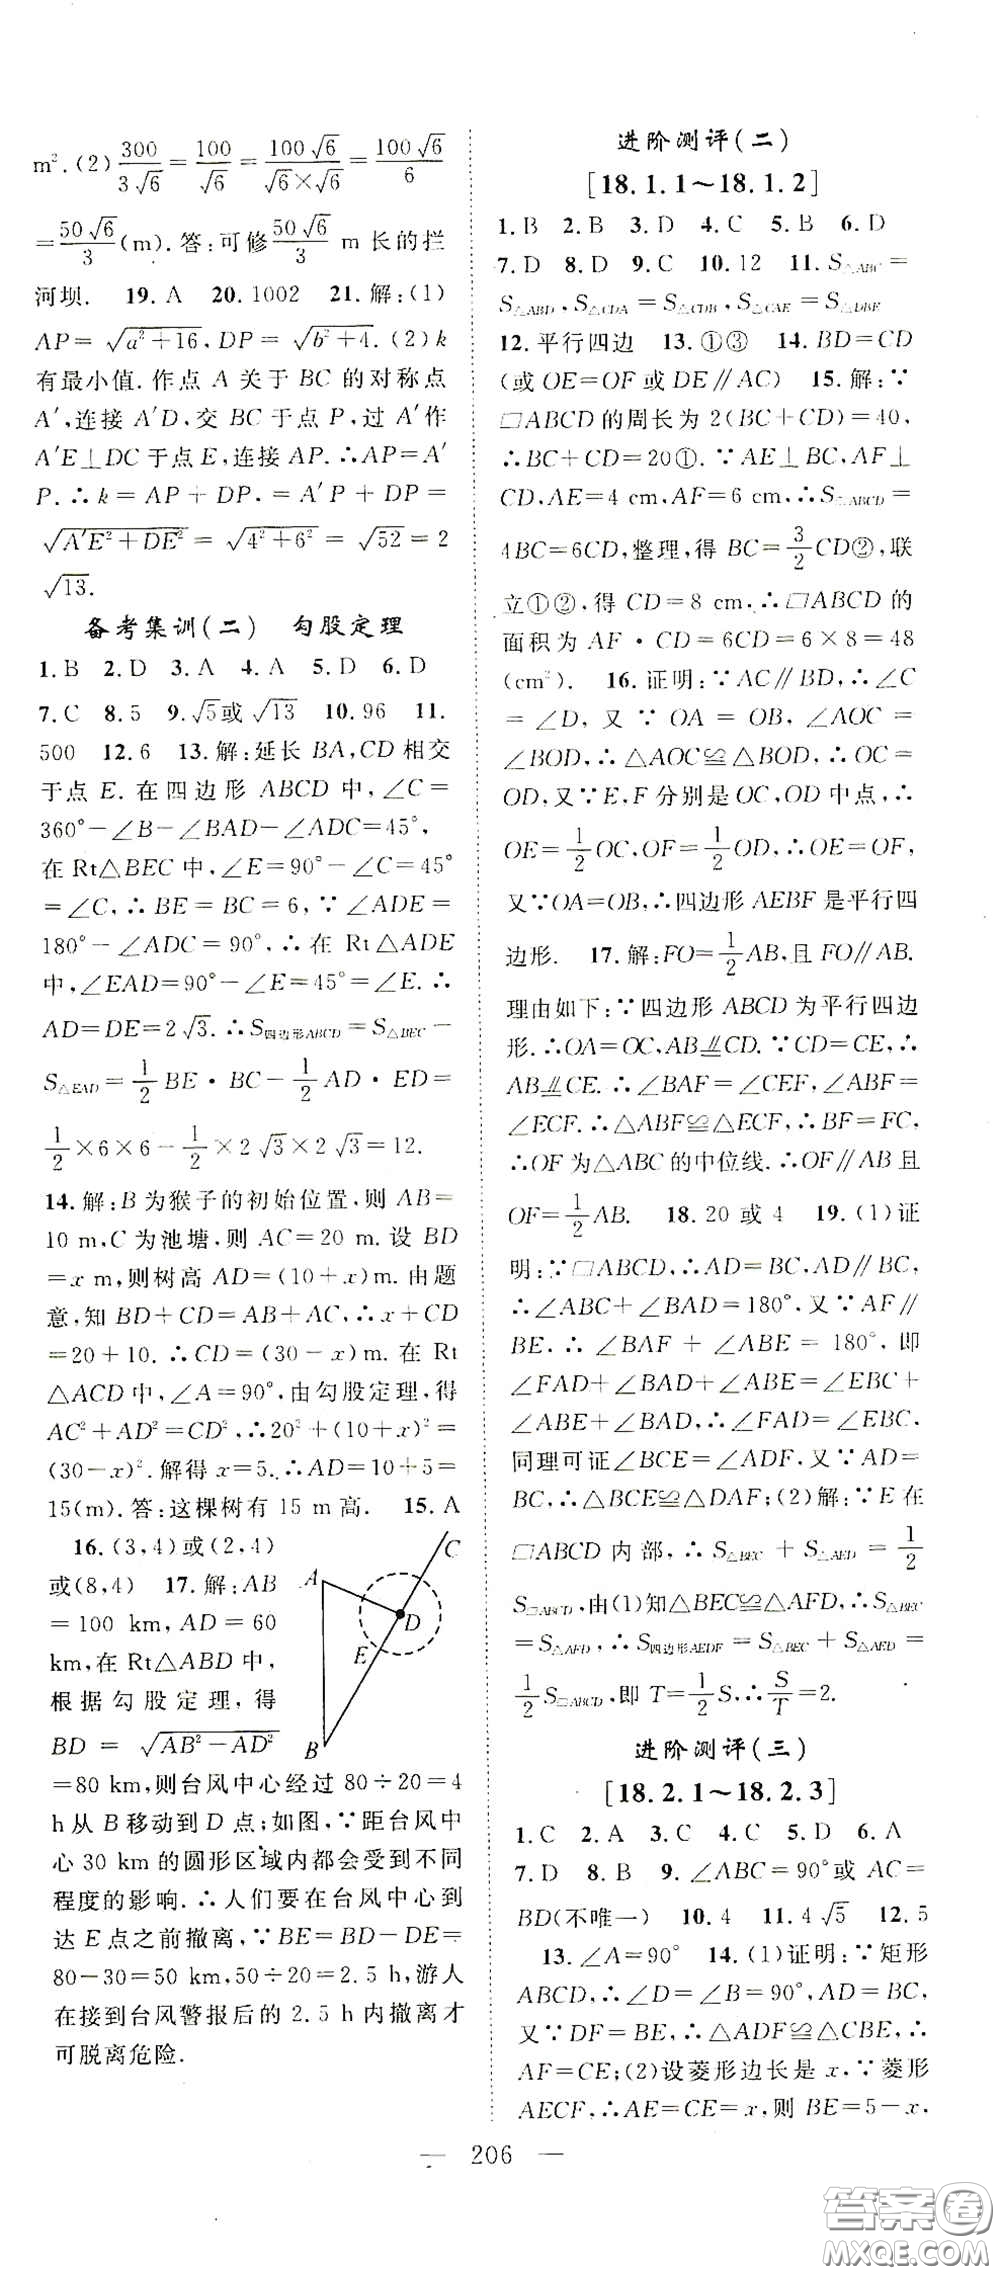 m².(2)300/3√6=100/√6=100√6/√6×√6=100√6/6
=50√6/3(m).答:可修50√6/3 m长的拦
河坝. 19.A 20.1002 21.解:(1)
AP=√a²+16,DP=√b²+4.(2)k
有最小值.作点A关于BC的对称点
A′,连接A′D,交BC于点P,过A′作
A′E⊥DC于点E,连接AP.∴AP=A′
P.∴k=AP+DP=A′P+DP=
√A′E²+DE²=√4²+6²=√52=2
√13.
备考集训(二) 勾股定理
1.B 2.D 3.A 4.A 5.D 6.D
7.C 8.5 9.√5或√13 10.96 11.
500 12.6 13.解:延长BA,CD相交
于点E.在四边形ABCD中,∠C=
360°-∠B-∠BAD-∠ADC=45°,
在Rt△BEC中,∠E=90°-∠C=45°
=∠C,∴BE=BC=6,∵∠ADE=
180°-∠ADC=90°,∴在Rt△ADE
中,∠EAD=90°-∠E=45°=∠E.∴
AD=DE=2√3.∴S四边形ABCD=S△BEC-
S△EAD=1/2BE·BC-1/2AD·ED=
1/2×6×6-1/2×2√3×2√3=12.
14.解:B为猴子的初始位置,则AB=
10 m,C为池塘,则AC=20 m.设BD
=x m,则树高AD=(10+x)m.由题
意,知BD+CD=AB+AC,∴x+CD
=20+10.∴CD=(30-x)m.在Rt
△ACD中,∠A=90°,由勾股定理,得
AC²+AD²=CD²,∴20²+(10+x)²=
(30-x)².解得x=5.∴AD=10+5=
15(m).答:这棵树有15 m高. 15.A
16.(3,4)或(2,4)
或(8,4) 17.解:AB
=100 km,AD=60
km,在Rt△ABD中,
根据勾股定理,得
BD=√AB²-AD²
A
B
C
D
E
=80 km,则台风中心经过80÷20=4
h从B移动到D点;如图,∵距台风中
心30 km的圆形区域内都会受到不同
程度的影响.∴人们要在台风中心到
达E点之前撤离,∵BE=BD-DE=
80-30=50 km,50÷20=2.5 h,游人
在接到台风警报后的2.5 h内撤离才
可脱离危险.
进阶测评(二)
[18.1.1~18.1.2]
1.B 2.B 3.D 4.C 5.B 6.D
7.D 8.D 9.C 10.12 11.S△ABC=
S△ABD,S△CDA=S△CDB,S△CAE=S△DBE
12.平行四边 13.①③ 14.BD=CD
(或OE=OF或DE∥AC) 15.解:∵
□ABCD的周长为2(BC+CD)=40,
∴BC+CD=20①.∵AE⊥BC,AF⊥
CD,AE=4 cm,AF=6 cm,∴S□ABCD=
4BC=6CD,整理,得BC=3/2CD②,联
立①②,得CD=8 cm,∴□ABCD的
面积为AF·CD=6CD=6×8=48
(cm²). 16.证明:∵AC∥BD,∴∠C
=∠D,又∵OA=OB,∠AOC=
∠BOD,∴△AOC≌△BOD,∴OC=
OD,又∵E,F分别是OC,OD中点,∴
OE=1/2OC,OF=1/2OD,∴OE=OF,
又∵OA=OB,∴四边形AEBF是平行四
边形. 17.解:FO=1/2AB,且FO∥AB.
理由如下:∵四边形ABCD为平行四边
形.∴OA=OC,AB⫽CD.∵CD=CE,∴
AB⫽CE.∴∠BAF=∠CEF,∠ABF=
∠ECF.∴△ABF≌△ECF,∴BF=FC,
∴OF为△ABC的中位线.∴OF∥AB且
OF=1/2AB. 18.20或4 19.(1)证
明:∵□ABCD,∴AD=BC,AD∥BC,
∴∠ABC+∠BAD=180°,又∵AF∥
BE.∴∠BAF+∠ABE=180°,即
∠FAD+∠BAD=∠EBC+
∠ABE+∠BAD,∴∠FAD=∠EBC,
同理可证∠BCE=∠ADF,又∵AD=
BC,∴△BCE≌△DAF;(2)解:∵E在
□ABCD内部,∴S△BEC+S△AED=1/2
S□ABCD,由(1)知△BEC≌△AFD,∴S△BEC
=S△AFD,∴S四边形AEDF=S△BEC+S△AED=
1/2S□ABCD,即T=1/2S,∴S/T=2.
进阶测评(三)
[18.2.1~18.2.3]
1.C 2.A 3.C 4.C 5.D 6.A
7.D 8.B 9.∠ABC=90°或AC=
BD(不唯一) 10.4 11.4√5 12.5
13.∠A=90° 14.(1)证明:∵矩形
ABCD,∴∠D=∠B=90°,AD=BC,
又∵DF=BE,∴△ADF≌△CBE,∴
AF=CE;(2)设菱形边长是x,∵菱形
AECF,∴AE=CE=x,则BE=5-x,
— 206 —
答案卷
MXQE.COM